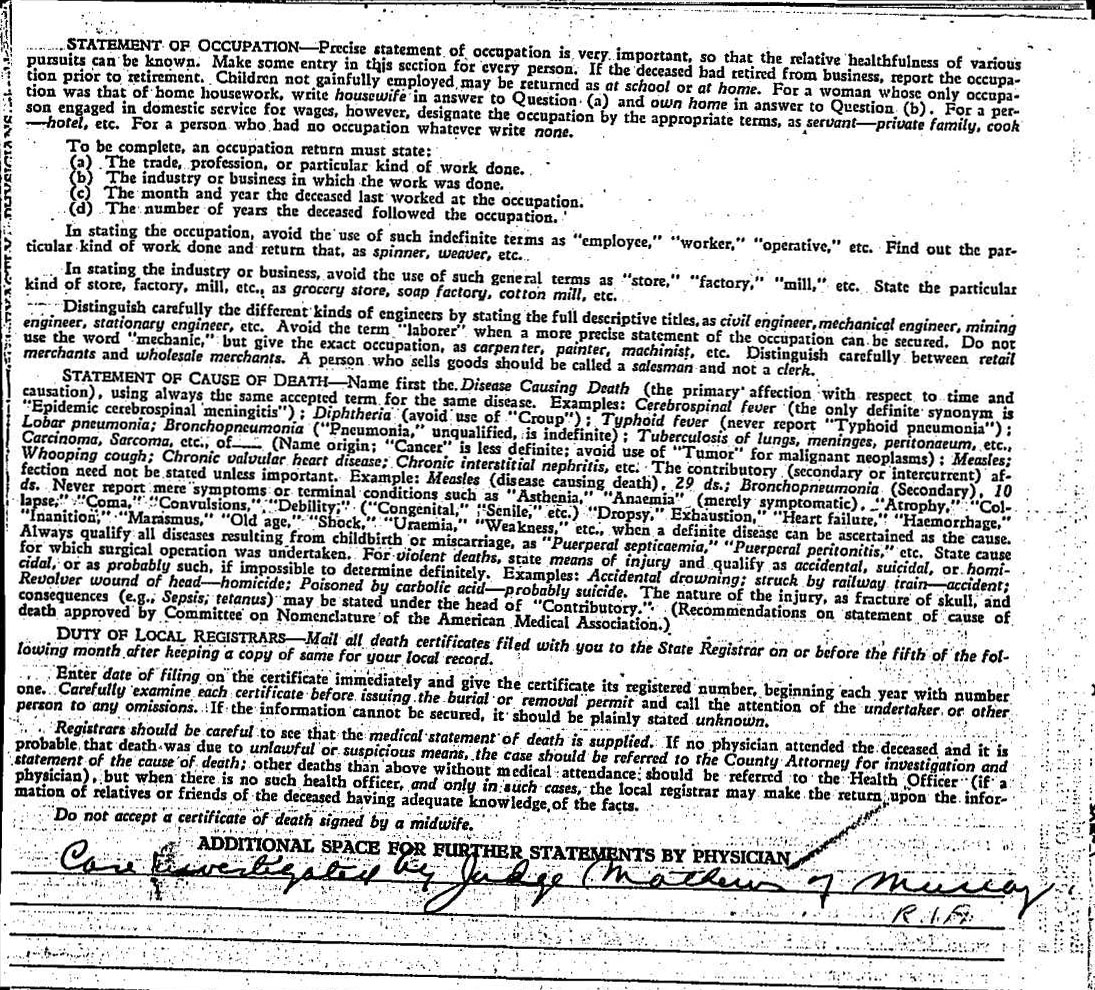 STATEMENT OF OCCUPATION—Precise statement of occupation is very important, so that the relative healthfulness of various
pursuits can be known. Make some entry in this section for every person. If the deceased had retired from business, report the occupa-
tion prior to retirement. Children not gainfully employed may be returned as at school or at home. For a woman whose only occupa-
tion was that of home housework, write housewife in answer to Question (a) and own home in answer to Question (b). For a per-
son engaged in domestic service for wages, however, designate the occupation by the appropriate terms, as servant—private family, cook
—hotel, etc. For a person who had no occupation whatever write none.
To be complete, an occupation return must state:
(a) The trade, profession, or particular kind of work done.
(b) The industry or business in which the work was done.
(c) The month and year the deceased last worked at the occupation.
(d) The number of years the deceased followed the occupation.
In stating the occupation, avoid the use of such indefinite terms as "employee," "worker," "operative," etc. Find out the par-
ticular kind of work done and return that, as spinner, weaver, etc.
In stating the industry or business, avoid the use of such general terms as "store," "factory," "mill," etc. State the particular
kind of store, factory, mill, etc., as grocery store, soap factory, cotton mill, etc.
Distinguish carefully the different kinds of engineers by stating the full descriptive titles, as civil engineer, mechanical engineer, mining
engineer, stationary engineer, etc. Avoid the term "laborer" when a more precise statement of the occupation can be secured. Do not
use the word "mechanic," but give the exact occupation, as carpenter, painter, machinist, etc. Distinguish carefully between retail
merchants and wholesale merchants. A person who sells goods should be called a salesman and not a clerk.
STATEMENT OF CAUSE OF DEATH—Name first the Disease Causing Death (the primary affection with respect to time and
causation), using always the same accepted term for the same disease. Examples: Cerebrospinal fever (the only definite synonym is
"Epidemic cerebrospinal meningitis"); Diphtheria (avoid use of "Croup"); Typhoid fever (never report "Typhoid pneumonia");
Lobar pneumonia; Bronchopneumonia ("Pneumonia," unqualified, is indefinite); Tuberculosis of lungs, meninges, peritonaeum, etc.,
Carcinoma, Sarcoma, etc., of—— (Name origin; "Cancer" is less definite; avoid use of "Tumor" for malignant neoplasms); Measles;
Whooping cough; Chronic valvular heart disease; Chronic interstitial nephritis, etc. The contributory (secondary or intercurrent) af-
fection need not be stated unless important. Example: Measles (disease causing death), 29 ds.; Bronchopneumonia (Secondary), 10
ds. Never report mere symptoms or terminal conditions such as "Asthenia," "Anaemia" (merely symptomatic), "Atrophy," "Col-
lapse," "Coma," "Convulsions," "Debility," ("Congenital," "Senile," etc.) "Dropsy," Exhaustion," "Heart failure," "Haemorrhage,"
"Inanition," "Marasmus," "Old age," "Shock," "Uraemia," "Weakness," etc., when a definite disease can be ascertained as the cause.
Always qualify all diseases resulting from childbirth or miscarriage, as "Puerperal septicaemia," "Puerperal peritonitis," etc. State cause
for which surgical operation was undertaken. For violent deaths, state means of injury and qualify as accidental, suicidal, or homi-
cidal, or as probably such, if impossible to determine definitely. Examples: Accidental drowning; struck by railway train—accident;
Revolver wound of head—homicide; Poisoned by carbolic acid—probably suicide. The nature of the injury, as fracture of skull, and
consequences (e.g., Sepsis, tetanus) may be stated under the head of "Contributory." (Recommendations on statement of cause of
death approved by Committee on Nomenclature of the American Medical Association.)
DUTY OF LOCAL REGISTRARS—Mail all death certificates filed with you to the State Registrar on or before the fifth of the fol-
lowing month after keeping a copy of same for your local record.
Enter date of filing on the certificate immediately and give the certificate its registered number, beginning each year with number
one. Carefully examine each certificate before issuing the burial or removal permit and call the attention of the undertaker or other
person to any omissions. If the information cannot be secured, it should be plainly stated unknown.
Registrars should be careful to see that the medical statement of death is supplied. If no physician attended the deceased and it is
probable that death was due to unlawful or suspicious means, the case should be referred to the County Attorney for investigation and
statement of the cause of death; other deaths than above without medical attendance should be referred to the Health Officer (if a
physician), but when there is no such health officer, and only in such cases, the local registrar may make the return upon the infor-
mation of relatives or friends of the deceased having adequate knowledge of the facts.
Do not accept a certificate of death signed by a midwife.
ADDITIONAL SPACE FOR FURTHER STATEMENTS BY PHYSICIAN
Case investigated by Judge Mathews of Murray